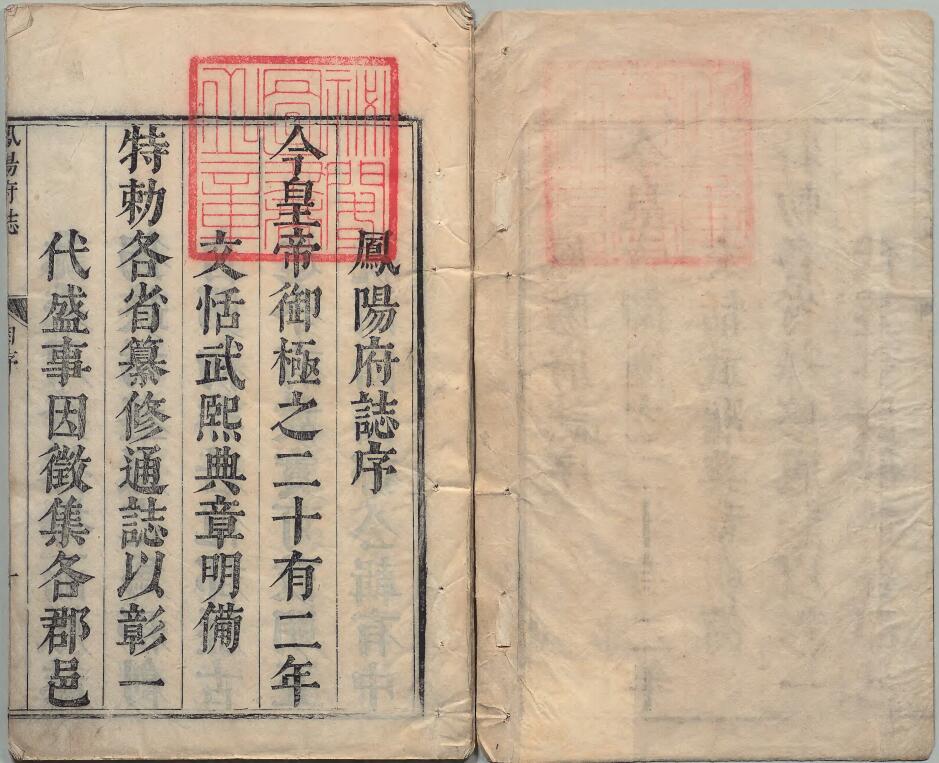 鳳陽府誌序
今皇帝御極之二十有二年
文恬武熙典章明備
特勅各省纂修通誌以彰一
代盛事因徵集各郡邑
鳳陽府誌
秘閣圖書之章